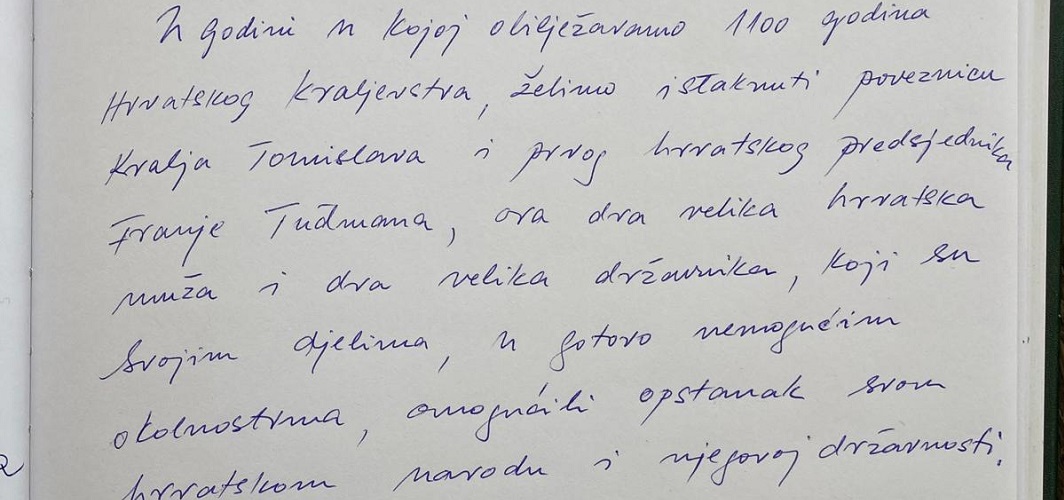 U godini u kojoj obilježavamo 1100 godina
Hrvatskog kraljevstva, želimo istaknuti poveznicu
kralja Tomislava i prvog hrvatskog predsjednika
Franje Tuđmana, ova dva velika hrvatska
muža i dva velika državnika, koji su
svojim djelima, u gotovo nemogućim
okolnostima, omogućili opstanak svom
hrvatskom narodu i njegovoj državnosti.